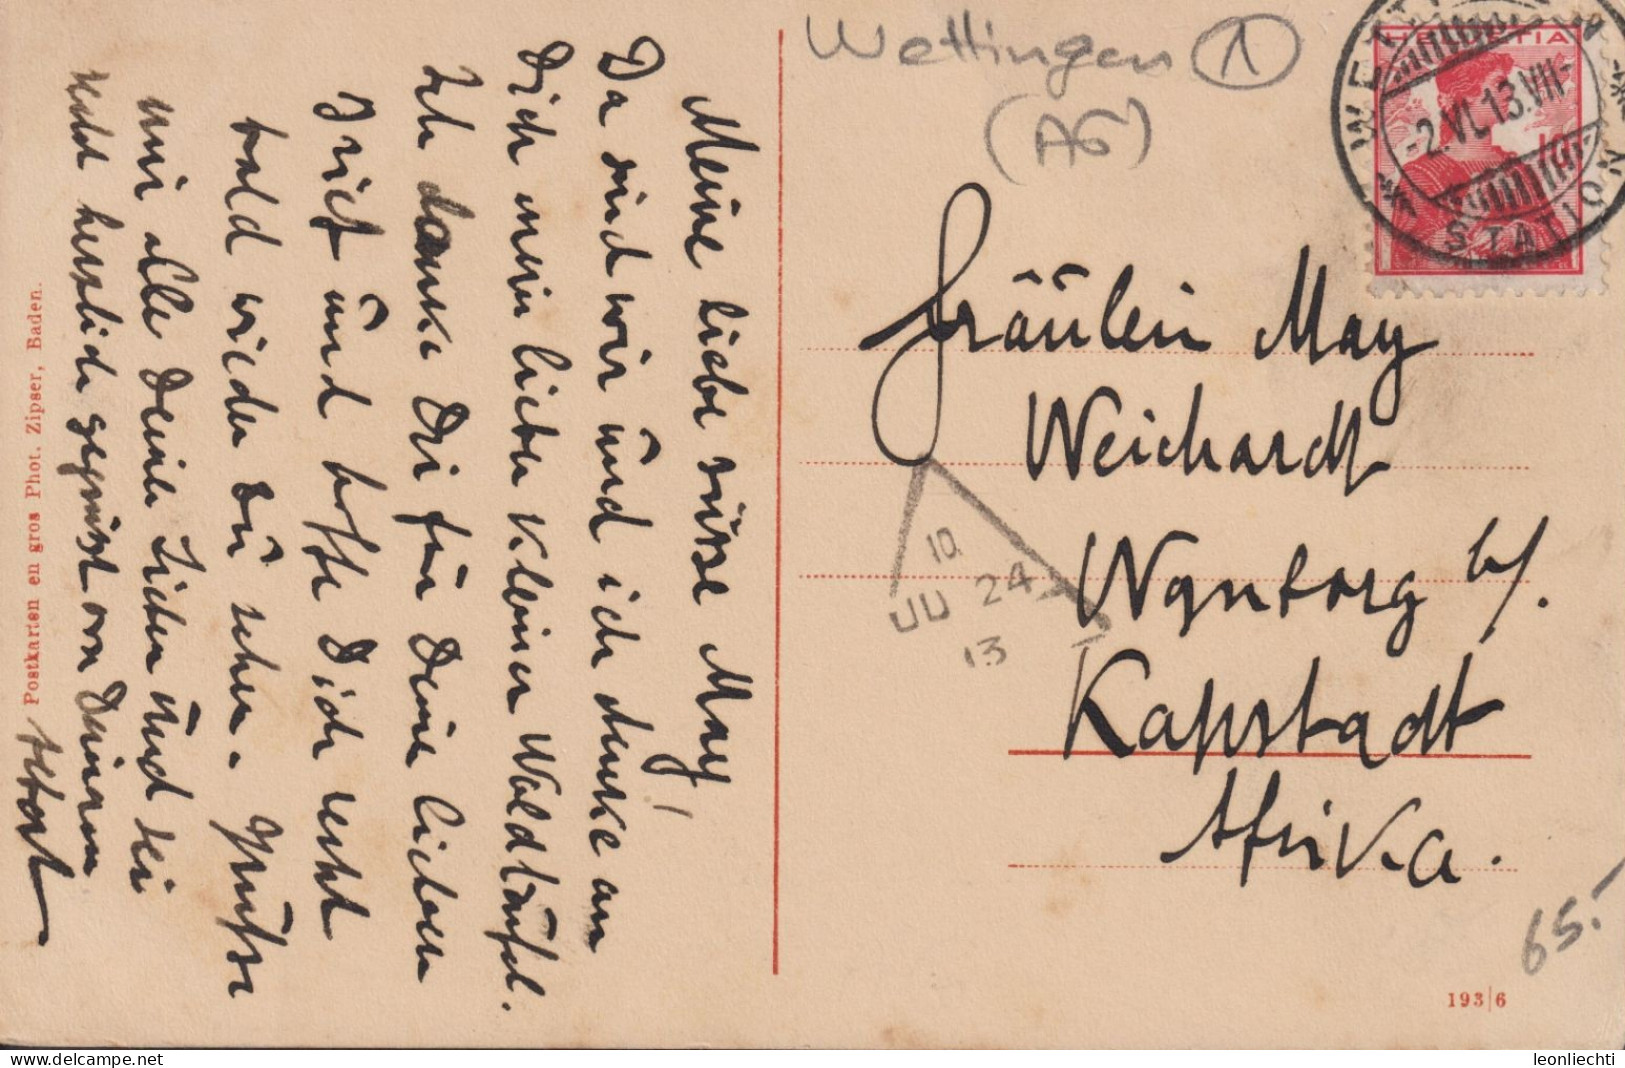 Wettingen 1
(AG)
HELVETIA
-2.VI.13.VII-
STATION
10
Meine liebe süsse May!
Da sind wir und ich denke an
Dich mein lieber kleiner Waldteufel.
Ich danke Dir für Deine lieben
Brief und hoffe Dich recht
bald wieder zu sehen. Grüsse
mir alle Deine Lieben und sei
recht herzlich gegrüsst von Deinem
Postkarten en gros Phot. Zipser, Baden.
Fräulein May
Weichardt
Wynborg b/.
Kapstadt
Afrika.
10
JU 24
13
65.-
193|6
leonliechti